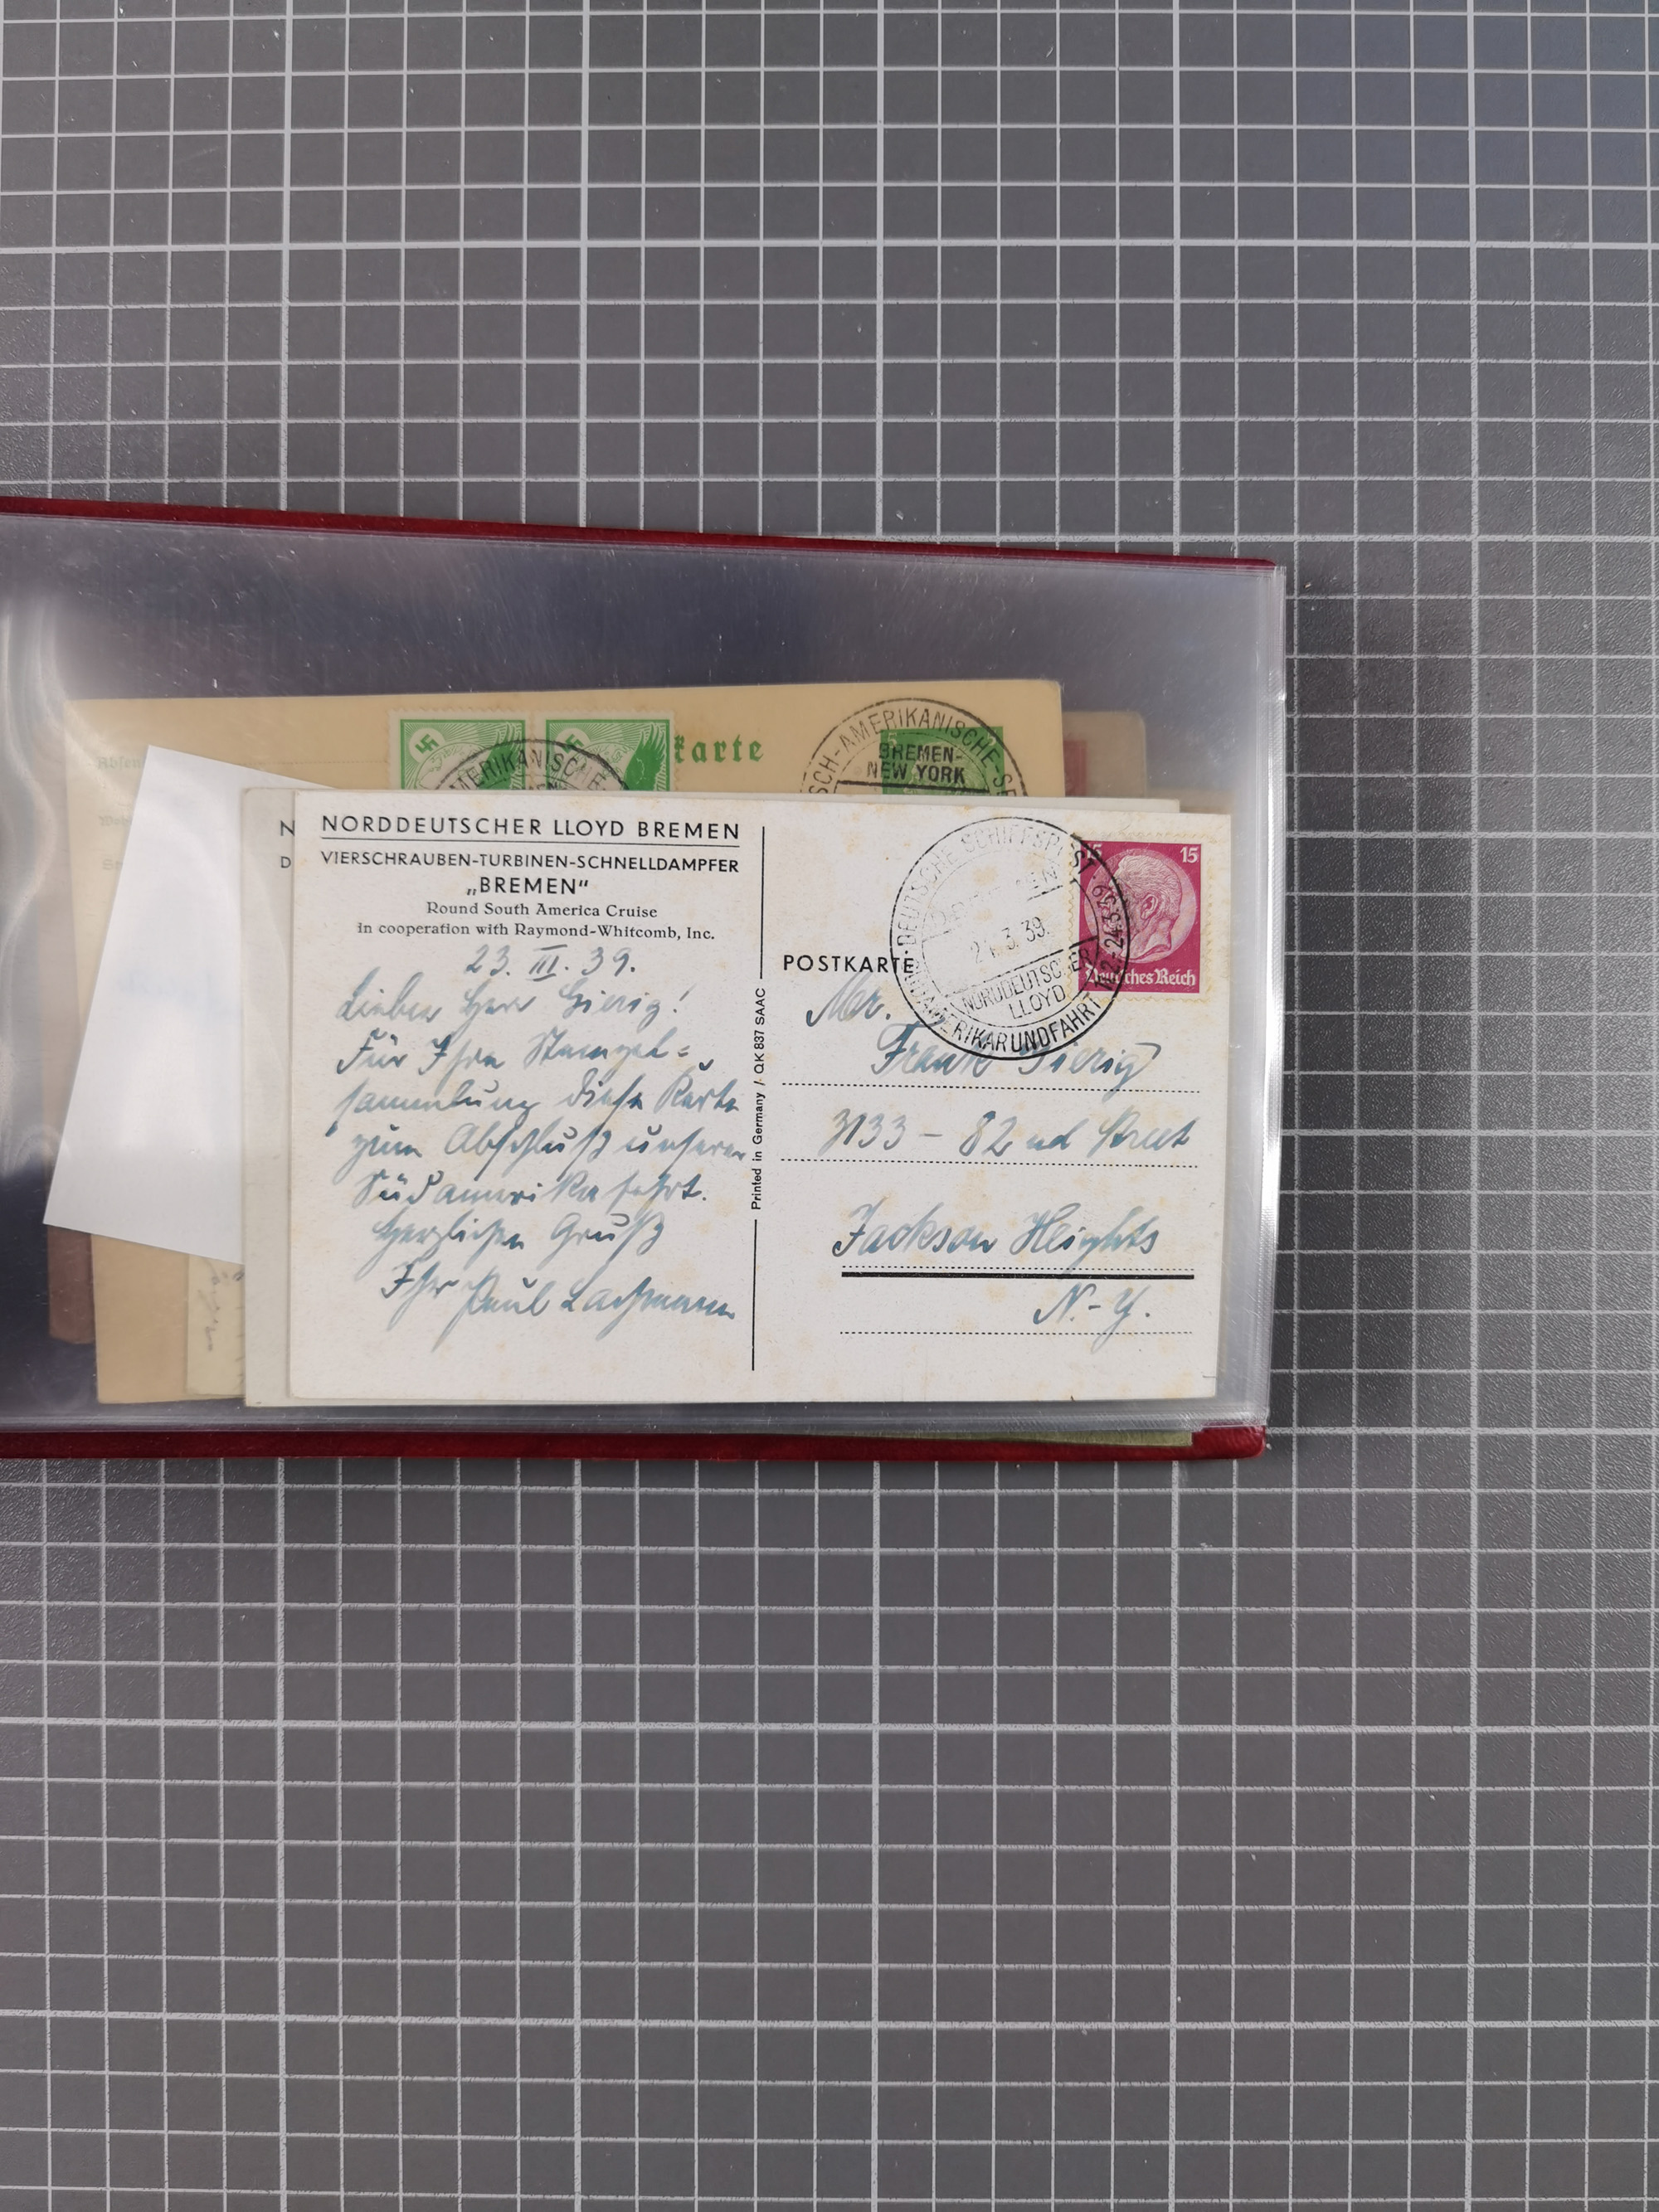 karte
SCH-AMERIKANISCHE-SE
BREMEN-
NEW YORK
AMERIKANISCHE
N
D
NORDDEUTSCHER LLOYD BREMEN
VIERSCHRAUBEN-TURBINEN-SCHNELLDAMPFER
„BREMEN“
Round South America Cruise
in cooperation with Raymond-Whitcomb, Inc.
23. III. 39.
Lieber Herr Gierig!
Für Ihre Stempel=
sammlung diese Karte
zum Abschluß unserer
Südamerikafahrt.
Herzlichen Gruß
Ihr Paul Lachmann
Printed in Germany / QK 837 SAAC
POSTKARTE
DEUTSCHE SCHIFFSPOST
3. 39.
NORDDEUTSCHER
LLOYD
SÜDAMERIKARUNDFAHRT 12.2-24.3.39
15 15
Deutsches Reich
Mr.
Frank Gierig
3133 – 82nd Street
Jackson Heights
N.-Y.